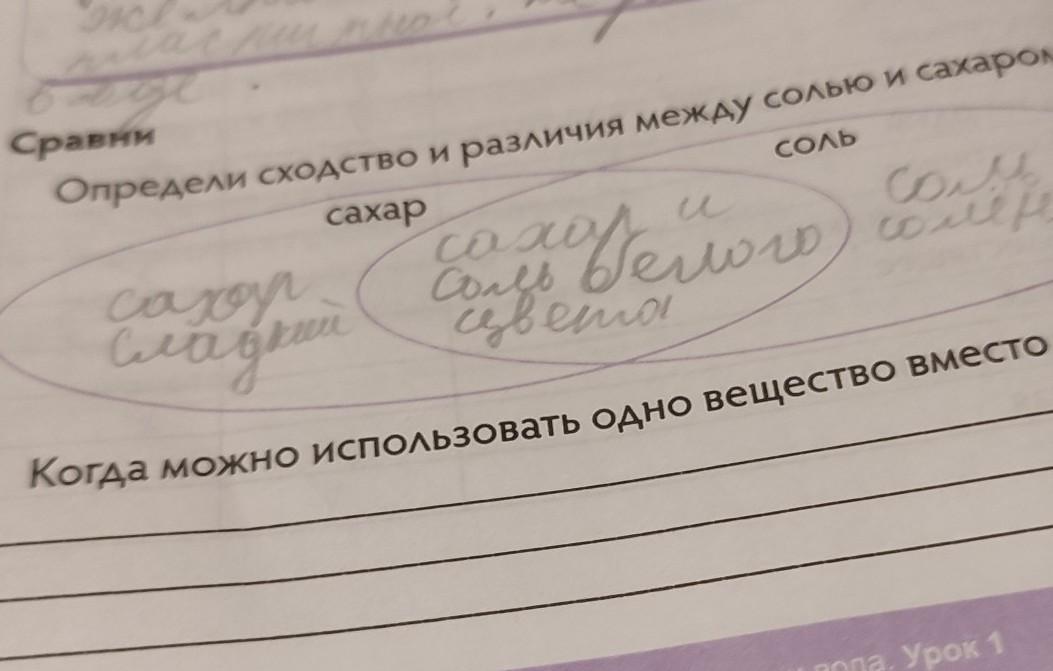 воде.
Сравни
Определи сходство и различия между солью и сахаром
сахар
соль
сахар
сладкий
сахар и
соль белого
цвета
Когда можно использовать одно вещество вместо
Урок 1